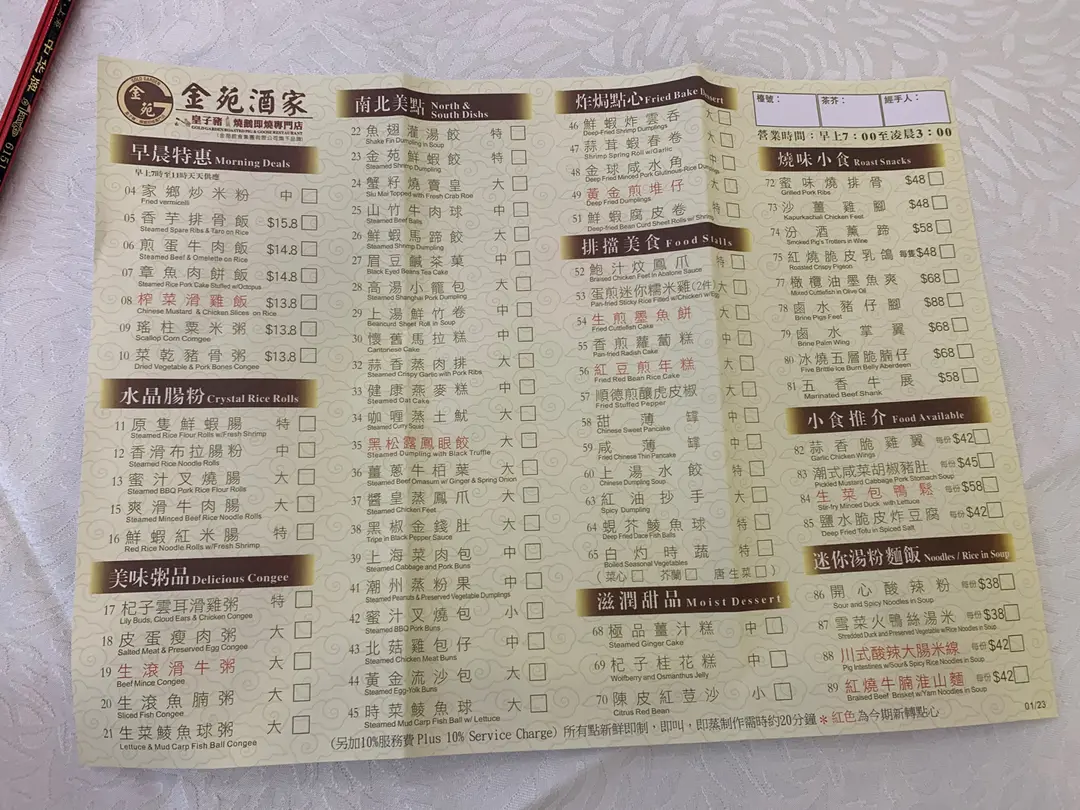 金苑酒家
皇子豬 燒鵝即燒專門店
早晨特惠 Morning Deals
早上7時至11時天天供應
04 家鄉炒米粉 中
Fried vermicelli
05 香芋排骨飯 $15.8
Steamed Spare Ribs & Taro on Rice
06 煎蛋牛肉飯 $14.8
Steamed Beef & Omelette on Rice
07 章魚肉餅飯 $14.8
Steamed Rice Pork Cake Stuffed w/Octopus
08 榨菜滑雞飯 $13.8
Chinese Mustard & Chicken Slices on Rice
09 瑤柱粟米粥 $13.8
Scallop Corn Comgee
10 菜乾豬骨粥 $13.8
Dried Vegetable & Pork Bones Congee
水晶腸粉 Crystal Rice Rolls
11 原隻鮮蝦腸 特
Steamed Rice Flour Rolls w/Fresh Shrimp
12 香滑布拉腸粉 中
Steamed Rice Noodle Rolls
13 蜜汁叉燒腸 大
Steamed BBQ Pork Rice Flour Rolls
15 爽滑牛肉腸 大
Steamed Minced Beef Rice Noodle Rolls
16 鮮蝦紅米腸 特
Red Rice Noodle Rolls w/Fresh Shrimp
美味粥品 Delicious Congee
17 杞子雲耳滑雞粥 特
Lily Buds, Cloud Ears & Chicken Congee
18 皮蛋瘦肉粥 大
Salted Meat & Preserved Egg Congee
19 生滾滑牛粥 大
Beef Mince Congee
20 生滾魚腩粥 大
Sliced Fish Congee
21 生菜鯪魚球粥 大
Lettuce & Mud Carp Fish Ball Congee
南北美點 North & South Dishs
22 魚翅灌湯餃 特
Shake Fin Dumpling In Soup
23 金苑鮮蝦餃 特
Steamed Shrimp Dumpling
24 蟹籽燒賣皇 大
Siu Mai Topped with Fresh Crab Roe
25 山竹牛肉球 中
Steamed Beef Balls
26 鮮蝦馬蹄餃 大
Steamed Shrimp Dumpling
27 眉豆鹹茶粿 中
Black Eyed Beans Tea Cake
28 高湯小籠包 大
Steamed Shanghai Pork Dumpling
29 上湯鮮竹卷 中
Beancurd Sheet Roll in Soup
30 懷舊馬拉糕 中
Cantonese Cake
32 蒜香蒸肉排 大
Steamed Crispy Garlic with Pork Ribs
33 健康燕麥糕 中
Steamed Oat Cake
34 咖喱蒸土魷 大
Steamed Curry Squid
35 黑松露鳳眼餃 大
Steamed Dumpling with Black Truffle
36 薑蔥牛栢葉 大
Steamed Beef Omasum w/ Ginger & Spring Onion
37 醬皇蒸鳳爪 大
Steamed Chicken Feet
38 黑椒金錢肚 大
Tripe in Black Pepper Sauce
39 上海菜肉包 中
Steamed Cabbage and Pork Buns
41 潮州蒸粉果 中
Steamed Peanuts & Preserved Vegetable Dumplings
42 蜜汁叉燒包 小
Steamed BBQ Pork Buns
43 北菇雞包仔 中
Steamed Chicken Meat Buns
44 黃金流沙包 大
Steamed Egg-Yolk Buns
45 時菜鯪魚球 大
Steamed Mud Carp Fish Ball w/ Lettuce
炸焗點心 Fried Bake Dessert
46 鮮蝦炸雲吞 大
Deep-Fried Shrimp Dumplings
47 蒜茸蝦春卷 大
Shrimp Spring Roll w/Garlic
48 金球咸水角 中
Deep Fried Minced Pork Glutinous-Rice Dumplings
49 黃金煎堆仔 大
Deep Fried Dumplings
51 鮮蝦腐皮卷 特
Deep-fried Bean Curd Sheet Rolls w/ Shrimp
排擋美食 Food Stalls
52 鮑汁炆鳳爪 特
Braised Chicken Feet In Abalone Sauce
53 蛋煎迷你糯米雞(2件) 大
Pan-fried Sticky Rice Filled w/Chicken w/Egg
54 生煎墨魚餅 大
Fried Cuttlefish Cake
55 香煎蘿蔔糕 中
Pan-fried Radish Cake
56 紅豆煎年糕 大
Fried Red Bean Rice Cake
57 順德煎釀虎皮椒 大
Fried Stuffed Pepper
58 甜薄罉 中
Chinese Sweet Pancake
59 咸薄罉 中
Chinese Fried Thin Pancake
60 上湯水餃 特
Chinese Dumpling Soup
63 紅油抄手 大
Spicy Dumpling
64 蜆芥鯪魚球 特
Deep Fried Dace Fish Balls
65 白灼時蔬 特
Boiled Seasonal Vegetables
(菜心 芥蘭 唐生菜)
滋潤甜品 Moist Dessert
68 極品薑汁糕 中
Steamed Ginger Cake
69 杞子桂花糕 中
Wolfberry and Osmanthus Jelly
70 陳皮紅荳沙 小
Citrus Red Bean
檯號： 茶芥： 經手人：
營業時間：早上7:00至凌晨3:00
燒味小食 Roast Snacks
72 蜜味燒排骨 $48
Grilled Pork Ribs
73 沙薑雞腳 $48
Kapurkachali Chicken Feet
74 汾酒薰蹄 $58
Smoked Pig's Trotters in Wine
75 紅燒脆皮乳鴿 每隻$48
Roasted Crispy Pigeon
77 橄欖油墨魚爽 $68
Mixed Cuttlefish in Olive Oil
78 鹵水豬仔腳 $88
Brine Pigs Feet
79 鹵水掌翼 $68
Brine Palm Wing
80 冰燒五層脆腩仔 $68
Five Brittle Ice Burn Belly Aberdeen
81 五香牛展 $58
Marinated Beef Shank
小食推介 Food Available
82 蒜香脆雞翼 每份$42
Garlic Chicken Wings
83 潮式咸菜胡椒豬肚 每份$45
Pickled Mustard Cabbage Pork Stomach Soup
84 生菜包鴨鬆 每份$58
Stir-fry Minced Duck with Lettuce
85 鹽水脆皮炸豆腐 每份$42
Deep Fried Tofu in Spiced Salt
迷你湯粉麵飯 Noodles / Rice in Soup
86 開心酸辣粉 每份$38
Sour and Spicy Noodles in Soup
87 雪菜火鴨絲湯米 每份$38
Shredded Duck and Preserved Vegetable w/Rice Noodles in Soup
88 川式酸辣大腸米線 每份$42
Pig Intestines w/Sour & Spicy Rice Noodles in Soup
89 紅燒牛腩淮山麵 每份$42
Braised Beef Brisket w/Yam Noodles in Soup
(另加10%服務費 Plus 10% Service Charge) 所有點新鮮即制，即叫，即蒸制作需時約20分鐘 *紅色為今期新轉點心
01/23